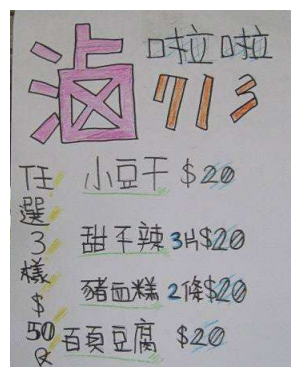 滷
啦啦
713
任選3樣$50
小豆干 $20
甜不辣 3片$20
豬血糕 2條$20
百頁豆腐 $20